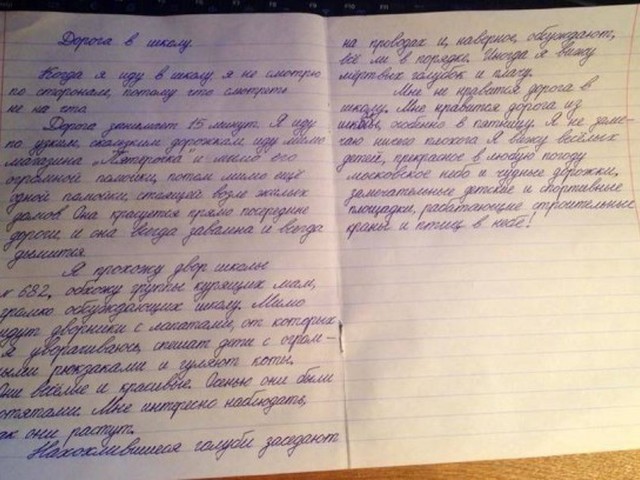 Дорога в школу.
Когда я иду в школу, я не смотрю
по сторонам, потому что смотреть
не на что.
Дорога занимает 15 минут. Я иду
по узким, скользким дорожкам, иду мимо
магазина "Пятёрочка" и мимо его
огромной помойки, потом мимо ещё
одной помойки, стоящей возле жилых
домов. Она красуется прямо посередине
дороги, и она всегда завалена и всегда
дымится.
Я прохожу двор школы
№ 682, обхожу группы курящих мам,
громко обсуждающих школу. Мимо
идут дворники с лапатами, от которых
я уворачиваюсь, спешат дети с огром-
ными рюкзаками и гуляют коты.
Они весёлые и красивые. Осенью они были
котятами. Мне интересно наблюдать,
как они растут.
Нахохлившиеся голуби заседают
на проводах и, наверное, обсуждают,
всё ли в порядке. Иногда я вижу
мёртвых голубок и плачу.
Мне не нравится дорога в
школу. Мне нравится дорога из
школы, особенно в пятницу. Я не заме-
чаю ничего плохого. Я вижу весёлых
детей, прекрасное в любую погоду
московское небо и чудные дорожки,
замечательные детские и спортивные
площадки, рабатающие строительные
краны и птиц в небе!